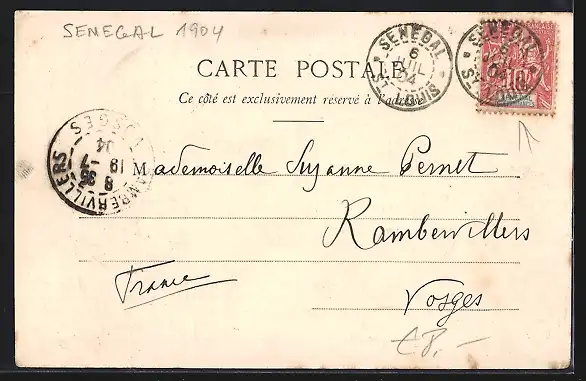 SENEGAL 1904
SENEGAL
6
JUIL
04
ST LOUIS
SENEGAL
6
04
ST LOUIS
10
CARTE POSTALE
Ce côté est exclusivement réservé à l'adresse
VOSGES
RAMBERVILLERS
8 35
19 -7
04
Mademoiselle Suzanne Pernet
Rambervillers
France
Vosges